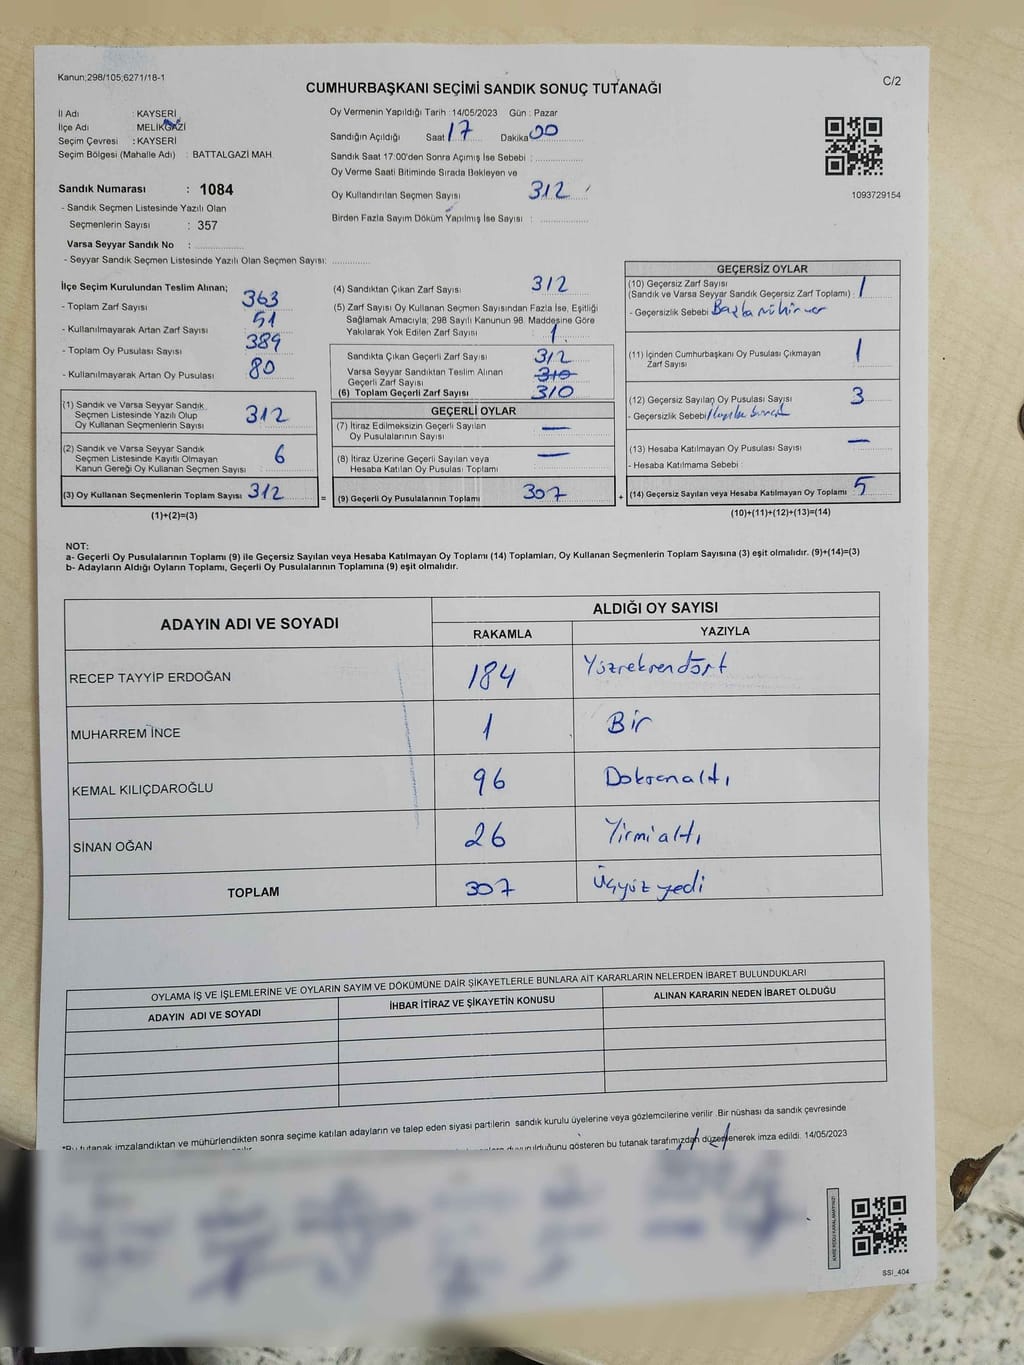 Kanun;298/105;6271/18-1
C/2
CUMHURBAŞKANI SEÇİMİ SANDIK SONUÇ TUTANAĞI
İl Adı : KAYSERİ
İlçe Adı : MELİKGAZİ
Seçim Çevresi : KAYSERİ
Seçim Bölgesi (Mahalle Adı) : BATTALGAZİ MAH.
Sandık Numarası : 1084
- Sandık Seçmen Listesinde Yazılı Olan
Seçmenlerin Sayısı : 357
Varsa Seyyar Sandık No :
- Seyyar Sandık Seçmen Listesinde Yazılı Olan Seçmen Sayısı:
Oy Vermenin Yapıldığı Tarih : 14/05/2023 Gün : Pazar
Sandığın Açıldığı Saat 17 Dakika 00
Sandık Saat 17:00'den Sonra Açımış İse Sebebi :
Oy Verme Saati Bitiminde Sırada Bekleyen ve
Oy Kullandırılan Seçmen Sayısı 312
Birden Fazla Sayım Döküm Yapılmış İse Sayısı :
1093729154
İlçe Seçim Kurulundan Teslim Alınan;
- Toplam Zarf Sayısı 363
- Kullanılmayarak Artan Zarf Sayısı 51
- Toplam Oy Pusulası Sayısı 389
- Kullanılmayarak Artan Oy Pusulası 80
(1) Sandık ve Varsa Seyyar Sandık
Seçmen Listesinde Yazılı Olup
Oy Kullanan Seçmenlerin Sayısı 312
(2) Sandık ve Varsa Seyyar Sandık
Seçmen Listesinde Kayıtlı Olmayan
Kanun Gereği Oy Kullanan Seçmen Sayısı 6
(3) Oy Kullanan Seçmenlerin Toplam Sayısı 312
(1)+(2)=(3)
=
(4) Sandıktan Çıkan Zarf Sayısı 312
(5) Zarf Sayısı Oy Kullanan Seçmen Sayısından Fazla İse, Eşitliği
Sağlamak Amacıyla; 298 Sayılı Kanunun 98. Maddesine Göre
Yakılarak Yok Edilen Zarf Sayısı 1
Sandıkta Çıkan Geçerli Zarf Sayısı 312
Varsa Seyyar Sandıktan Teslim Alınan
Geçerli Zarf Sayısı 310
(6) Toplam Geçerli Zarf Sayısı 310
GEÇERLİ OYLAR
(7) İtiraz Edilmeksizin Geçerli Sayılan
Oy Pusulalarının Sayısı —
(8) İtiraz Üzerine Geçerli Sayılan veya
Hesaba Katılan Oy Pusulası Toplamı —
(9) Geçerli Oy Pusulalarının Toplamı 307
+
GEÇERSİZ OYLAR
(10) Geçersiz Zarf Sayısı
(Sandık ve Varsa Seyyar Sandık Geçersiz Zarf Toplamı) : 1
- Geçersizlik Sebebi
(11) İçinden Cumhurbaşkanı Oy Pusulası Çıkmayan
Zarf Sayısı 1
(12) Geçersiz Sayılan Oy Pusulası Sayısı 3
- Geçersizlik Sebebi
(13) Hesaba Katılmayan Oy Pusulası Sayısı —
- Hesaba Katılmama Sebebi :
(14) Geçersiz Sayılan veya Hesaba Katılmayan Oy Toplamı 5
(10)+(11)+(12)+(13)=(14)
NOT:
a- Geçerli Oy Pusulalarının Toplamı (9) ile Geçersiz Sayılan veya Hesaba Katılmayan Oy Toplamı (14) Toplamları, Oy Kullanan Seçmenlerin Toplam Sayısına (3) eşit olmalıdır. (9)+(14)=(3)
b- Adayların Aldığı Oyların Toplamı, Geçerli Oy Pusulalarının Toplamına (9) eşit olmalıdır.
ADAYIN ADI VE SOYADI
ALDIĞI OY SAYISI
RAKAMLA YAZIYLA
RECEP TAYYİP ERDOĞAN 184 Yüzseksendört
MUHARREM İNCE 1 Bir
KEMAL KILIÇDAROĞLU 96 Doksanaltı
SİNAN OĞAN 26 Yirmialtı
TOPLAM 307 Üçyüz yedi
OYLAMA İŞ VE İŞLEMLERİNE VE OYLARIN SAYIM VE DÖKÜMÜNE DAİR ŞİKAYETLERLE BUNLARA AİT KARARLARIN NELERDEN İBARET BULUNDUKLARI
ADAYIN ADI VE SOYADI İHBAR İTİRAZ VE ŞİKAYETİN KONUSU ALINAN KARARIN NEDEN İBARET OLDUĞU
"Bu tutanak imzalandıktan ve mühürlendikten sonra seçime katılan adayların ve talep eden siyasi partilerin sandık kurulu üyelerine veya gözlemcilerine verilir. Bir nüshası da sandık çevresinde
duyurulduğunu gösteren bu tutanak tarafımızdan düzenlenerek imza edildi. 14/05/2023
SSI_404